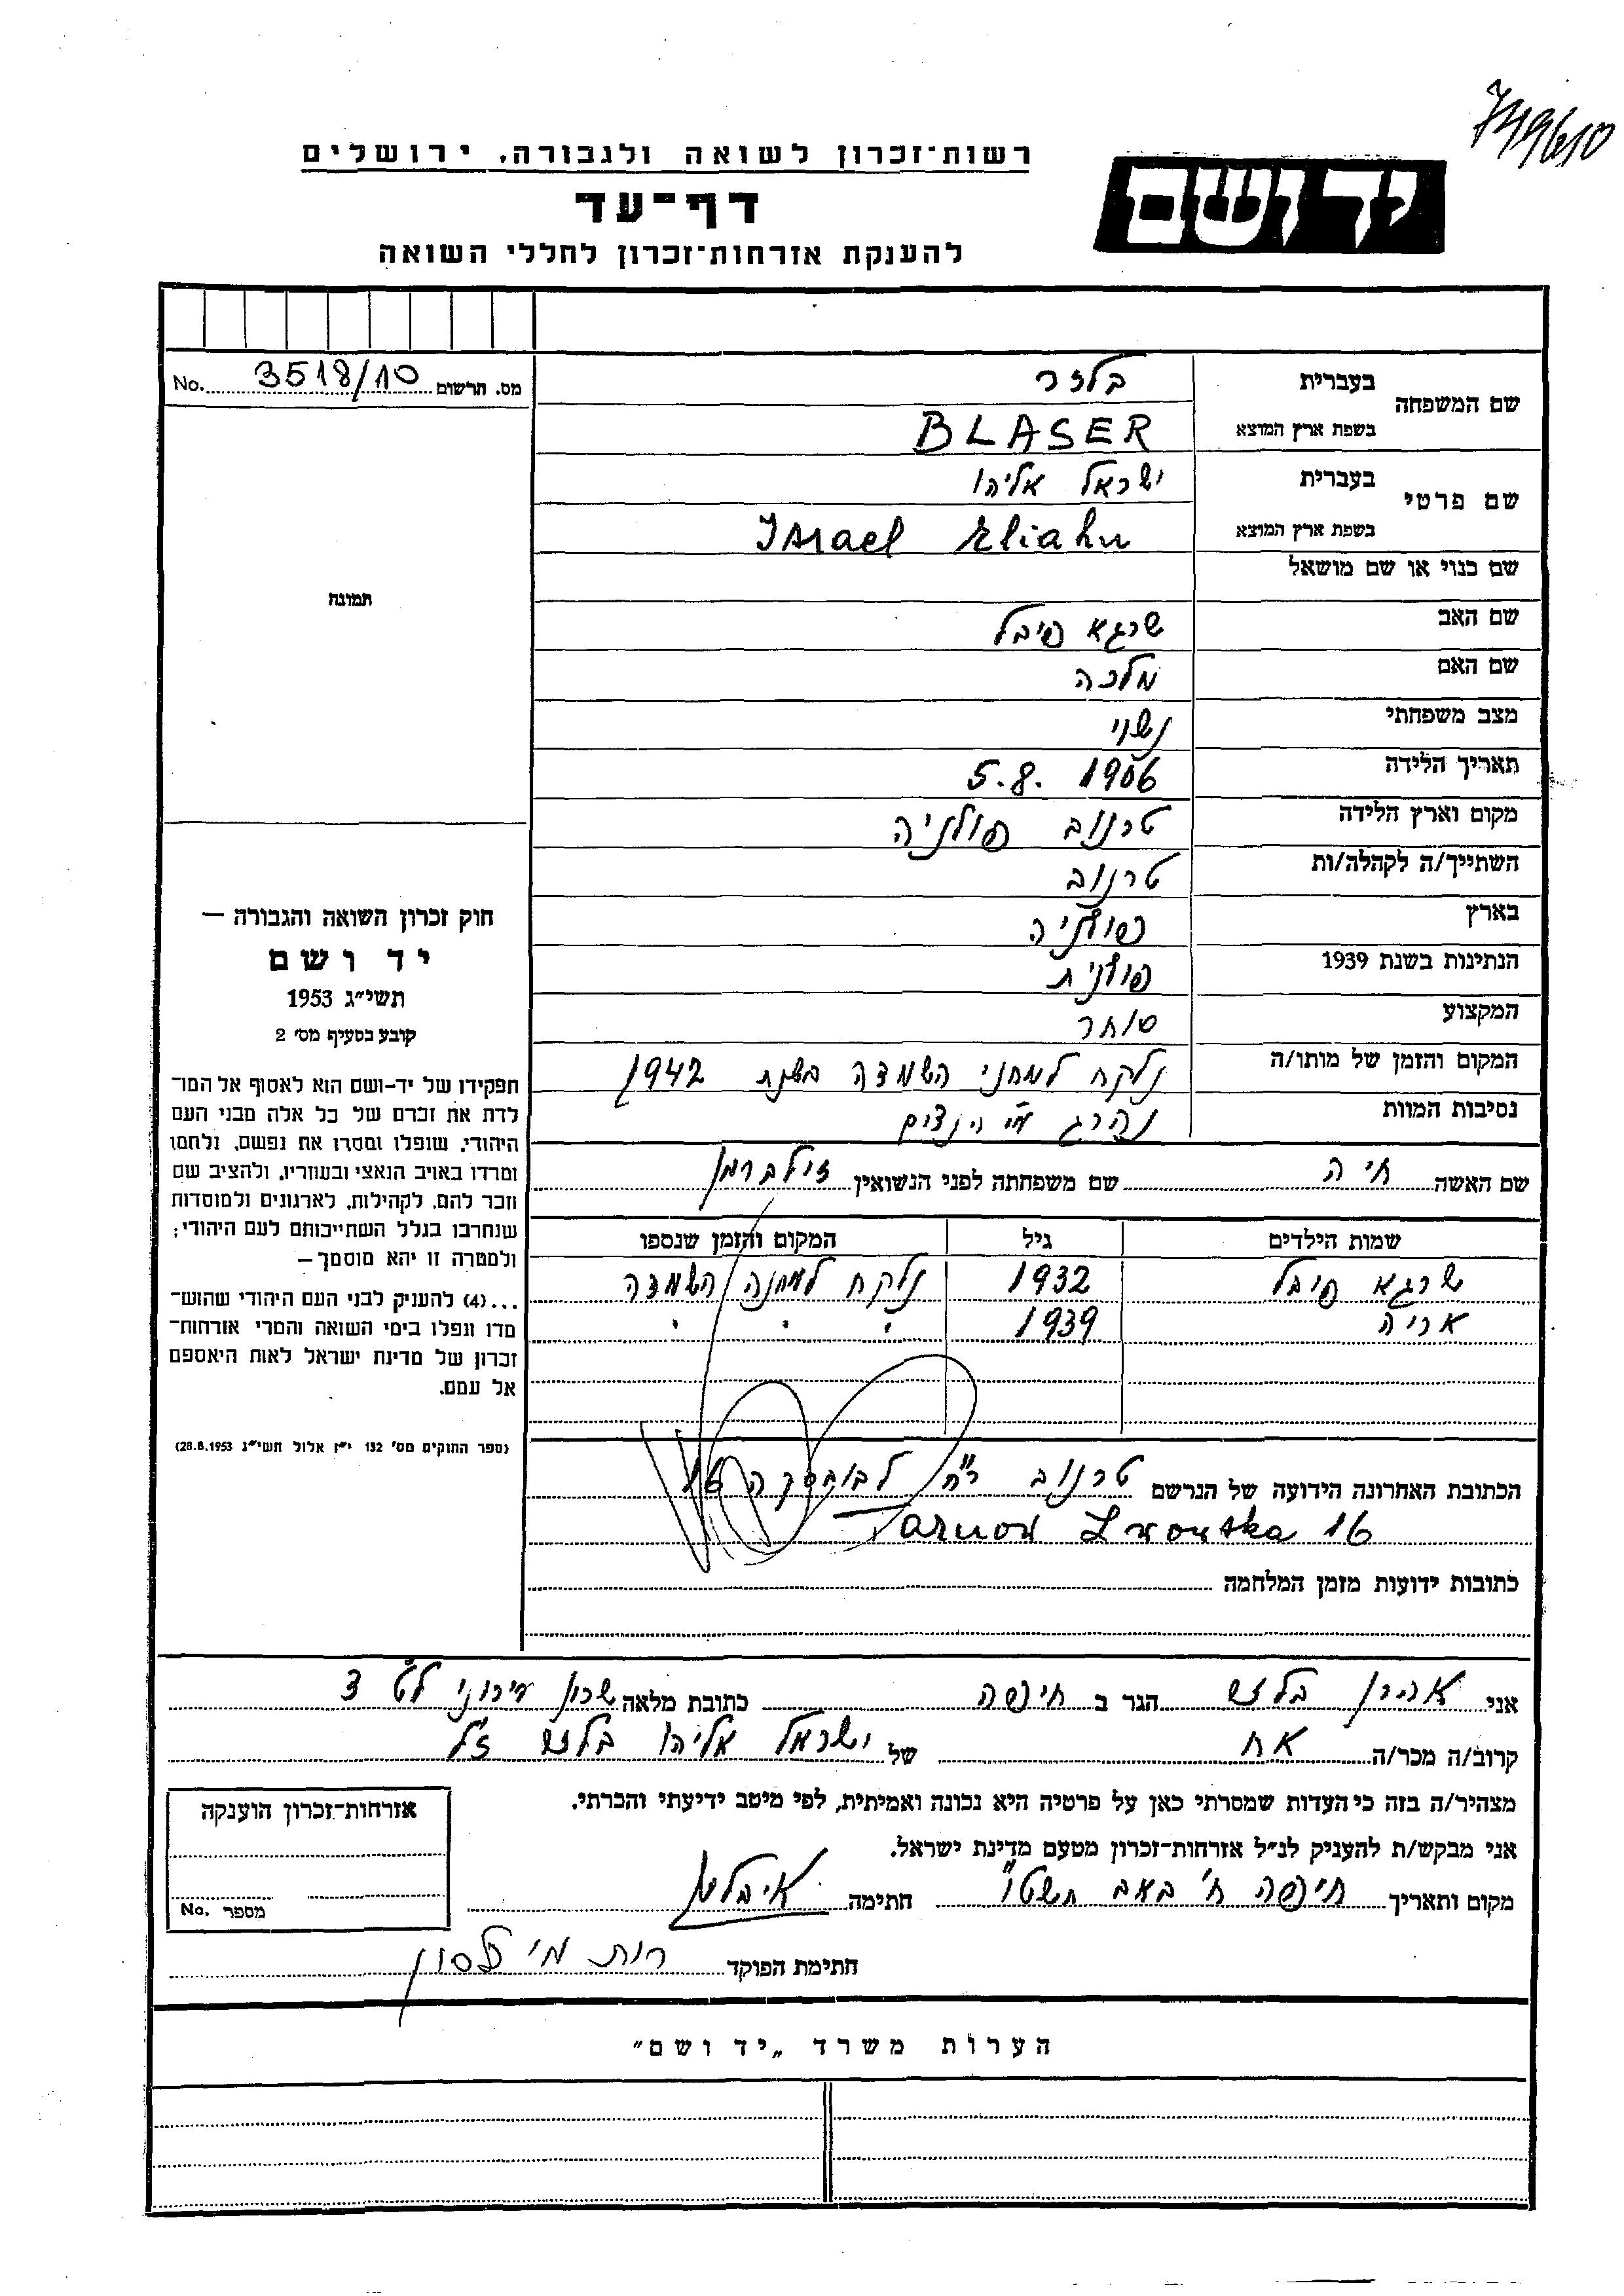 749610
רשות-זכרון לשואה ולגבורה, ירושלים
יד ושם
דף-עד
להענקת אזרחות-זכרון לחללי השואה
מס. הרשום 3518/10 No.
תמונה
שם המשפחה
בעברית בלזר
בשפת ארץ המוצא BLASER
שם פרטי
בעברית ישראל אליהו
בשפת ארץ המוצא Israel Eliahu
שם כנוי או שם מושאל
שם האב שרגא פיבל
שם האם מלכה
מצב משפחתי נשוי
תאריך הלידה 5.8. 1906
מקום וארץ הלידה טרנוב פולניה
השתייך/ה לקהלה/ות טרנוב
בארץ פולניה
הנתינות בשנת 1939 פולנית
המקצוע סוחר
המקום והזמן של מותו/ה נלקח למחני השמדה בשנת 1942
נסיבות המוות נהרג ע"י הנצים
שם האשה חיה שם משפחתה לפני הנשואין זילברמן
שמות הילדים גיל המקום והזמן שנספו
שרגא פיבל 1932 נלקח למחנה השמדה
אריה 1939 " " "
הכתובת האחרונה הידועה של הנרשם טרנוב רח' לבובסקה 16
Tarnow Lwowska 16
כתובות ידועות מזמן המלחמה
חוק זכרון השואה והגבורה –
יד ושם
תשי"ג 1953
קובע בסעיף מס' 2
תפקידו של יד-ושם הוא לאסוף אל המו-
לדת את זכרם של כל אלה מבני העם
היהודי, שנפלו ומסרו את נפשם, נלחמו
ומרדו באויב הנאצי ובעוזריו, ולהציב שם
וזכר להם, לקהילות, לארגונים ולמוסדות
שנחרבו בגלל השתייכותם לעם היהודי;
ולמטרה זו יהא מוסמך –
...(4) להעניק לבני העם היהודי שהוש-
מדו ונפלו בימי השואה והמרי אזרחות-
זכרון של מדינת ישראל לאות היאספם
אל עמם.
(ספר החוקים מס' 132 י"ז אלול תשי"ג 28.8.1953)
אני אהרן בלזר הגר ב חיפה כתובת מלאה שכון עירוני לט 3
קרוב/ה מכר/ה אח של ישראל אליהו בלזר ז"ל
מצהיר/ה בזה כי העדות שמסרתי כאן על פרטיה היא נכונה ואמיתית, לפי מיטב ידיעתי והכרתי.
אני מבקש/ת להעניק לנ"ל אזרחות-זכרון מטעם מדינת ישראל.
מקום ותאריך חיפה ח' באב תשט"ו חתימה
חתימת הפוקד רות
אזרחות-זכרון הוענקה
מספר No.
הערות משרד „יד ושם"